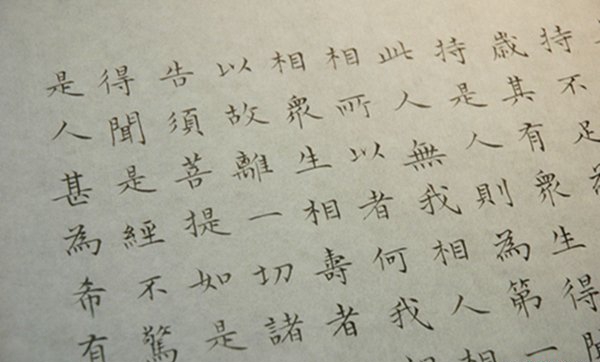 持不足為
歲其有眾生得聞
持是人則為第一
此人無我相人相
相所以者何我
相眾生相壽者
以故離一切諸
告須菩提如是
得聞是經不驚
是人甚為希有